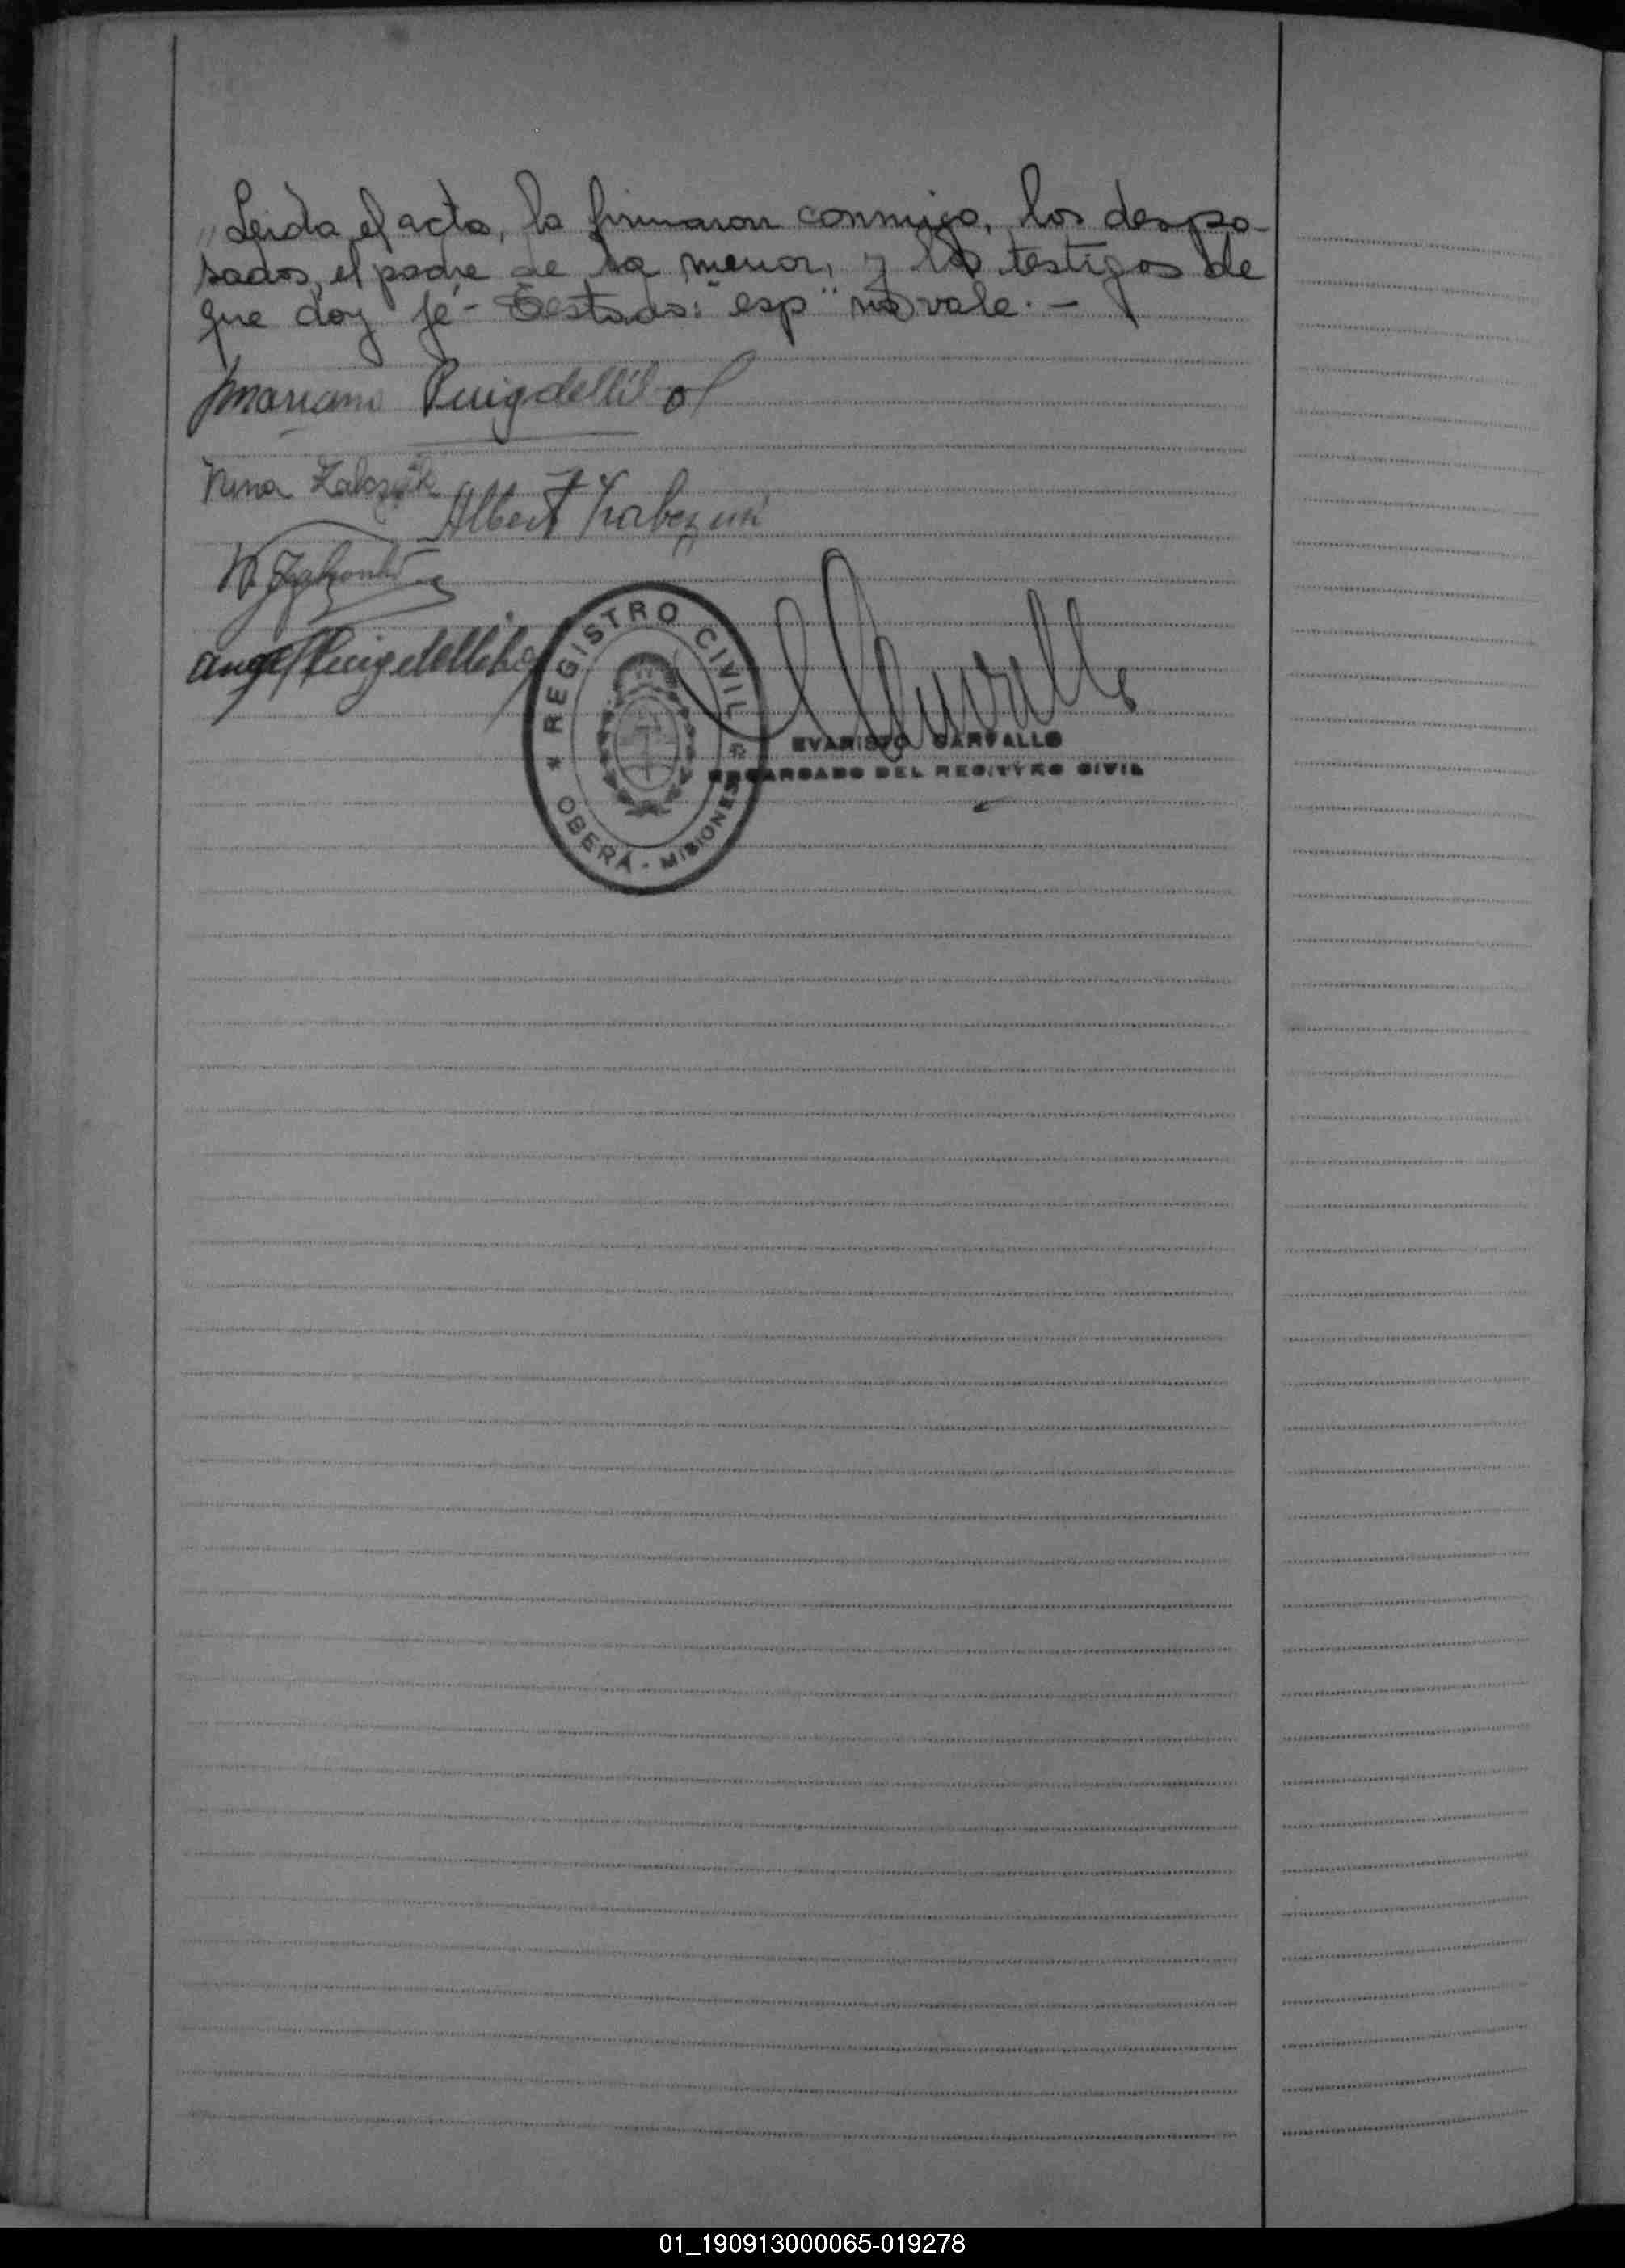 Leida el acta, la firmaron conmigo, los despo-
sados, el padre de la menor, y los testigos de
que doy fé - Testado: "esp" no vale. -
Mariano Puigdellibol
Nina Zalczuk
Albert
Angel Puigdellibol
REGISTRO CIVIL
OBERÁ - MISIONES
EVARISTO CARVALLO
ENCARGADO DEL REGISTRO CIVIL
01_190913000065-019278